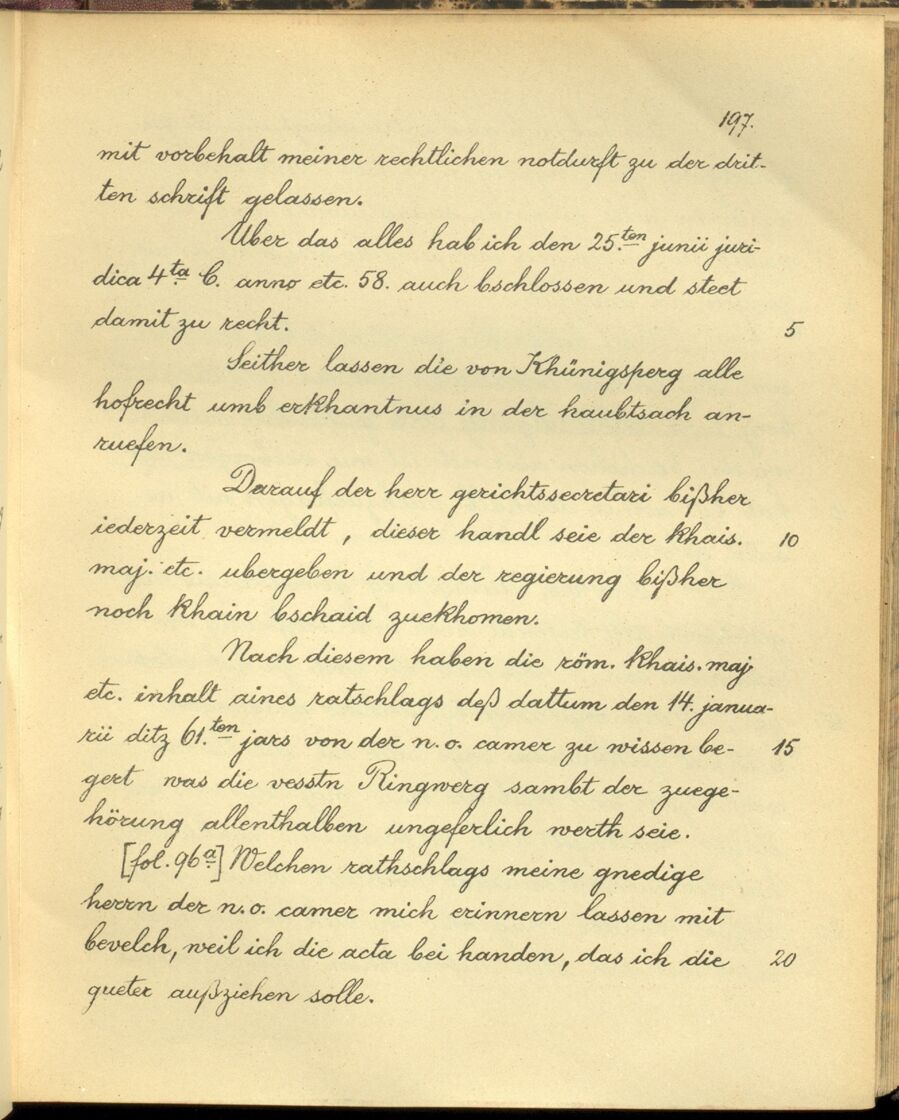 197.
mit vorbehalt meiner rechtlichen notdurft zu der drit-
ten schrift gelassen.
Über das alles hab ich den 25.ten junii juri-
dica 4ta C. anno etc. 58. auch bschlossen und steet
damit zu recht. 5
Seither lassen die von Khünigsperg alle
hofrecht umb erkhantnus in der haubtsach an-
ruefen.
Darauf der herr gerichtssecretari bißher
iederzeit vermeldt, dieser handl seie der khais. 10
maj. etc. ubergeben und der regierung bißher
noch khain bschaid zuekhomen.
Nach diesem haben die röm. khais. maj.
etc. inhalt aines ratschlags deß dattum den 14. janua-
rii ditz 61.ten jars von der n. o. camer zu wissen be- 15
gert was die vesstn Ringwerg sambt der zuege-
hörung allenthalben ungeferlich werth seie.
[fol. 96a] Welchen rathschlags meine gnedige
herrn der n. o. camer mich erinnern lassen mit
bevelch, weil ich die acta bei handen, das ich die 20
gueter außziehen solle.